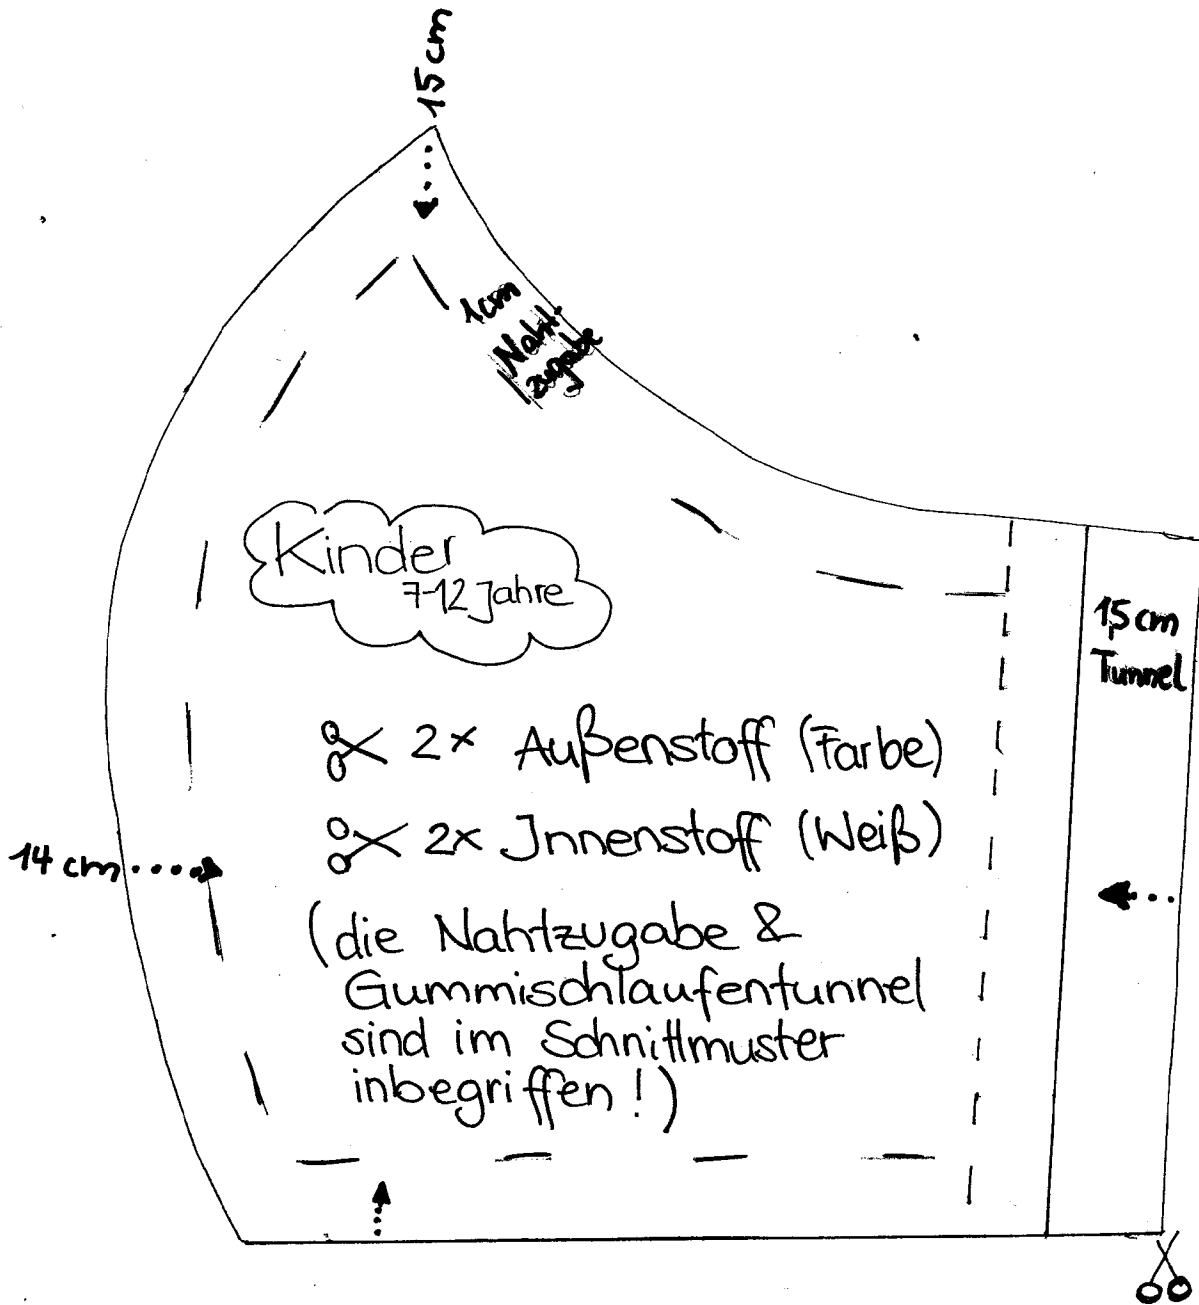 15 cm
1cm
Naht-
zugabe
Kinder
7-12 Jahre
1,5 cm
Tunnel
2x Außenstoff (Farbe)
2x Innenstoff (Weiß)
14 cm
(die Nahtzugabe &
Gummischlaufentunnel
sind im Schnittmuster
inbegriffen!)